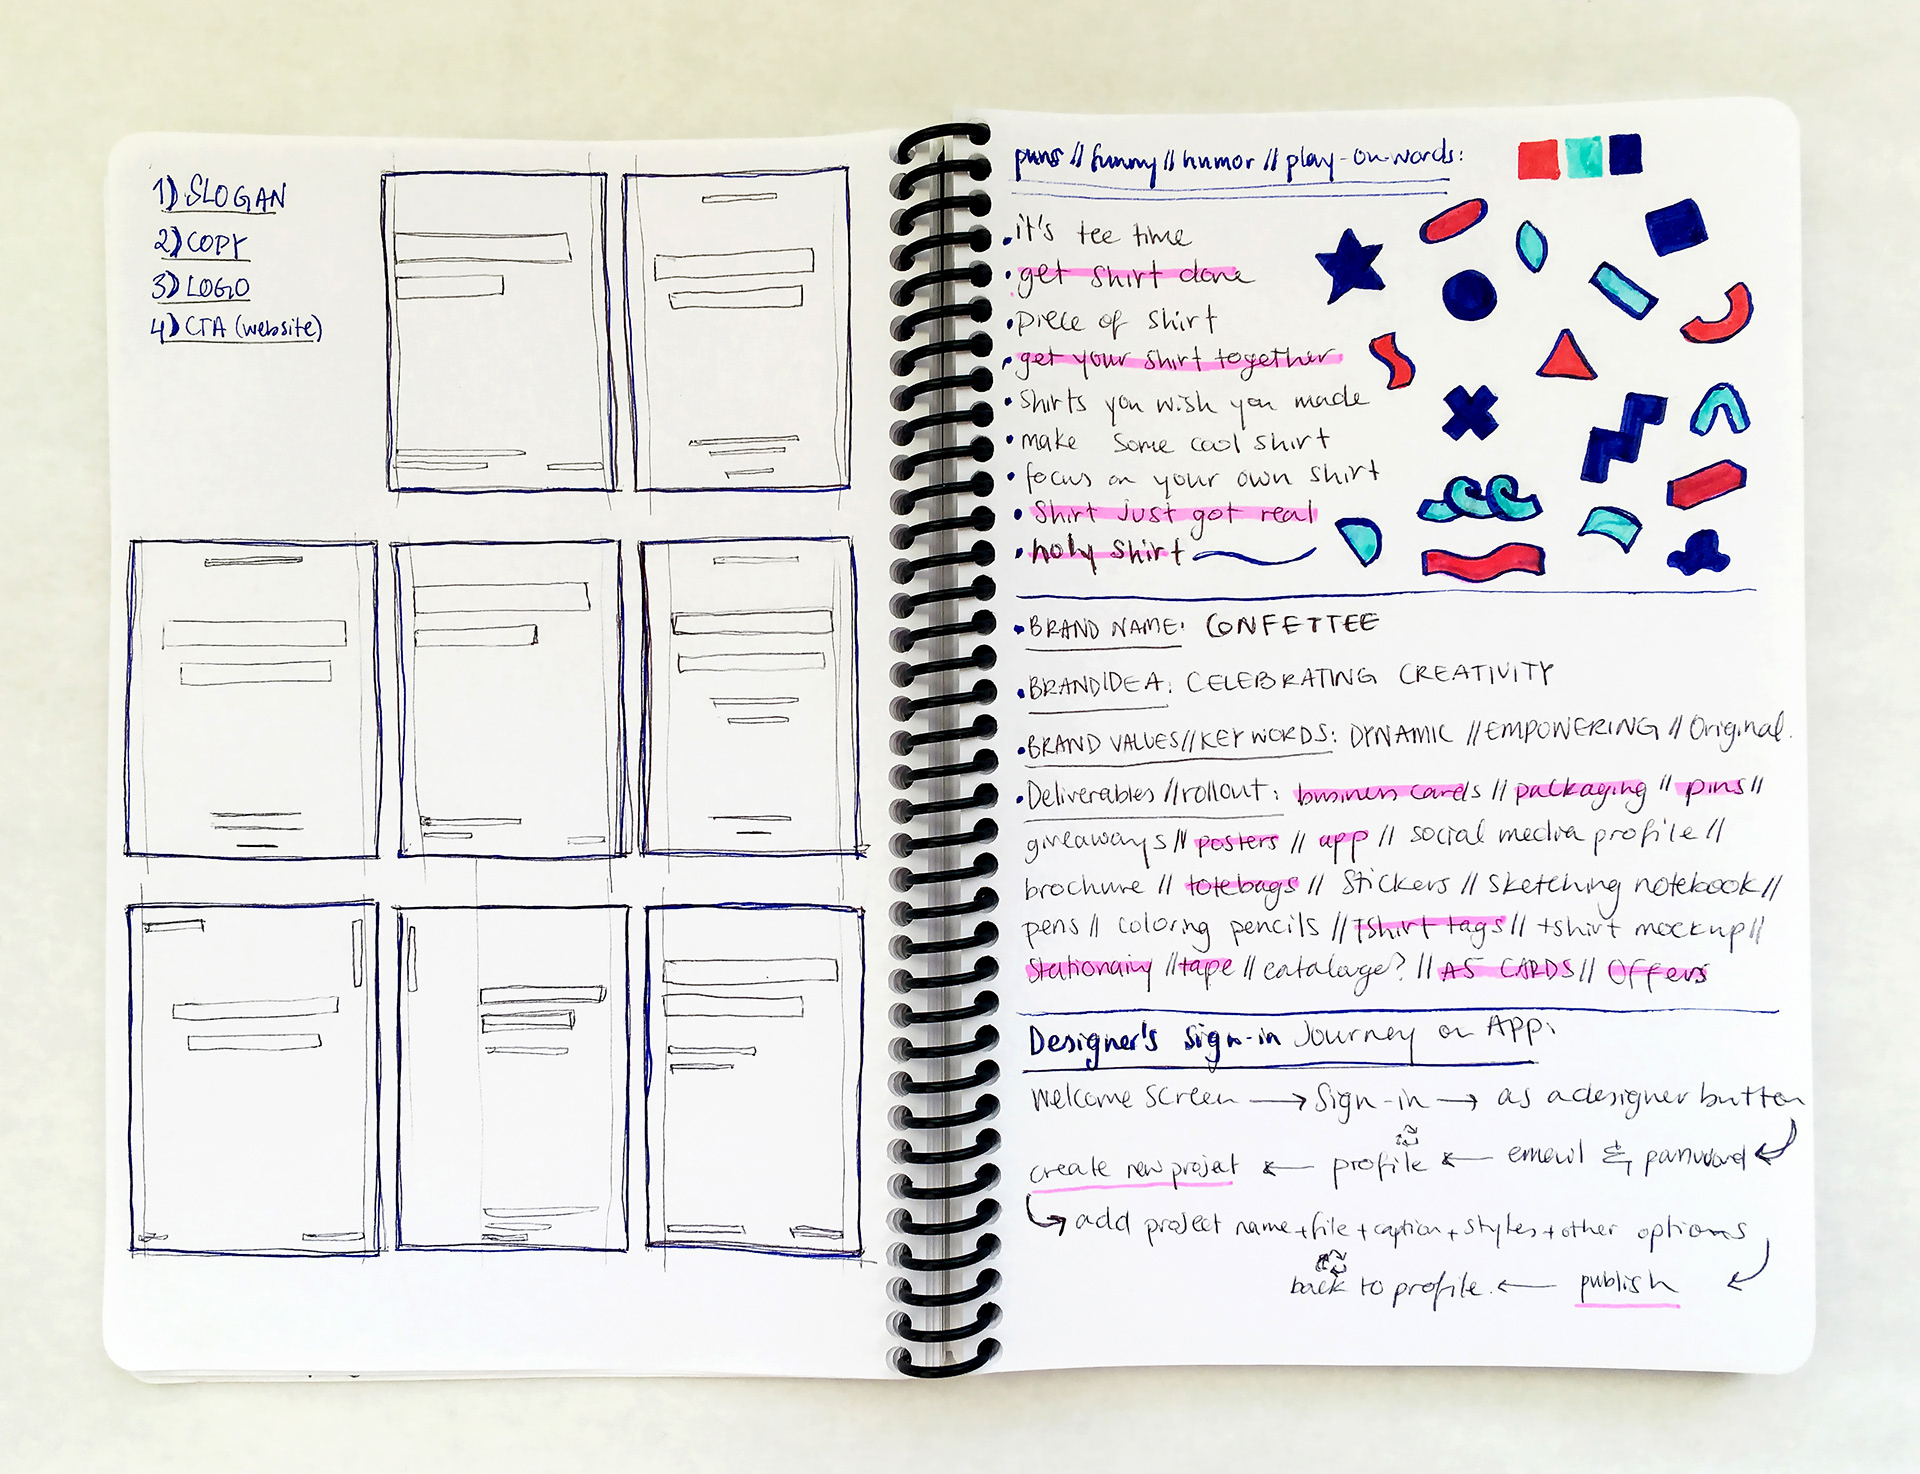 1) SLOGAN
2) COPY
3) LOGO
4) CTA (website)
puns // funny // humor // play-on-words:
• it's tee time
• get shirt done
• piece of shirt
• get your shirt together
• Shirts you wish you made
• make some cool shirt
• focus on your own shirt
• Shirt just got real
• holy shirt
• BRAND NAME: CONFETTEE
• BRAND IDEA: CELEBRATING CREATIVITY
• BRAND VALUES // KEY WORDS: DYNAMIC // EMPOWERING // Original.
• Deliverables // rollout: business cards // packaging // pins //
giveaways // posters // app // social media profile //
brochure // totebags // Stickers // sketching notebook //
pens // coloring pencils // Tshirt tags // tshirt mockup //
Stationairy // tape // catalage? // A5 CARDS // Offers
Designer's Sign-in Journey on App:
Welcome Screen → Sign-in → as a designer button
create new project ← profile ← email & password
add project name + file + caption + styles + other options
back to profile. ← publish